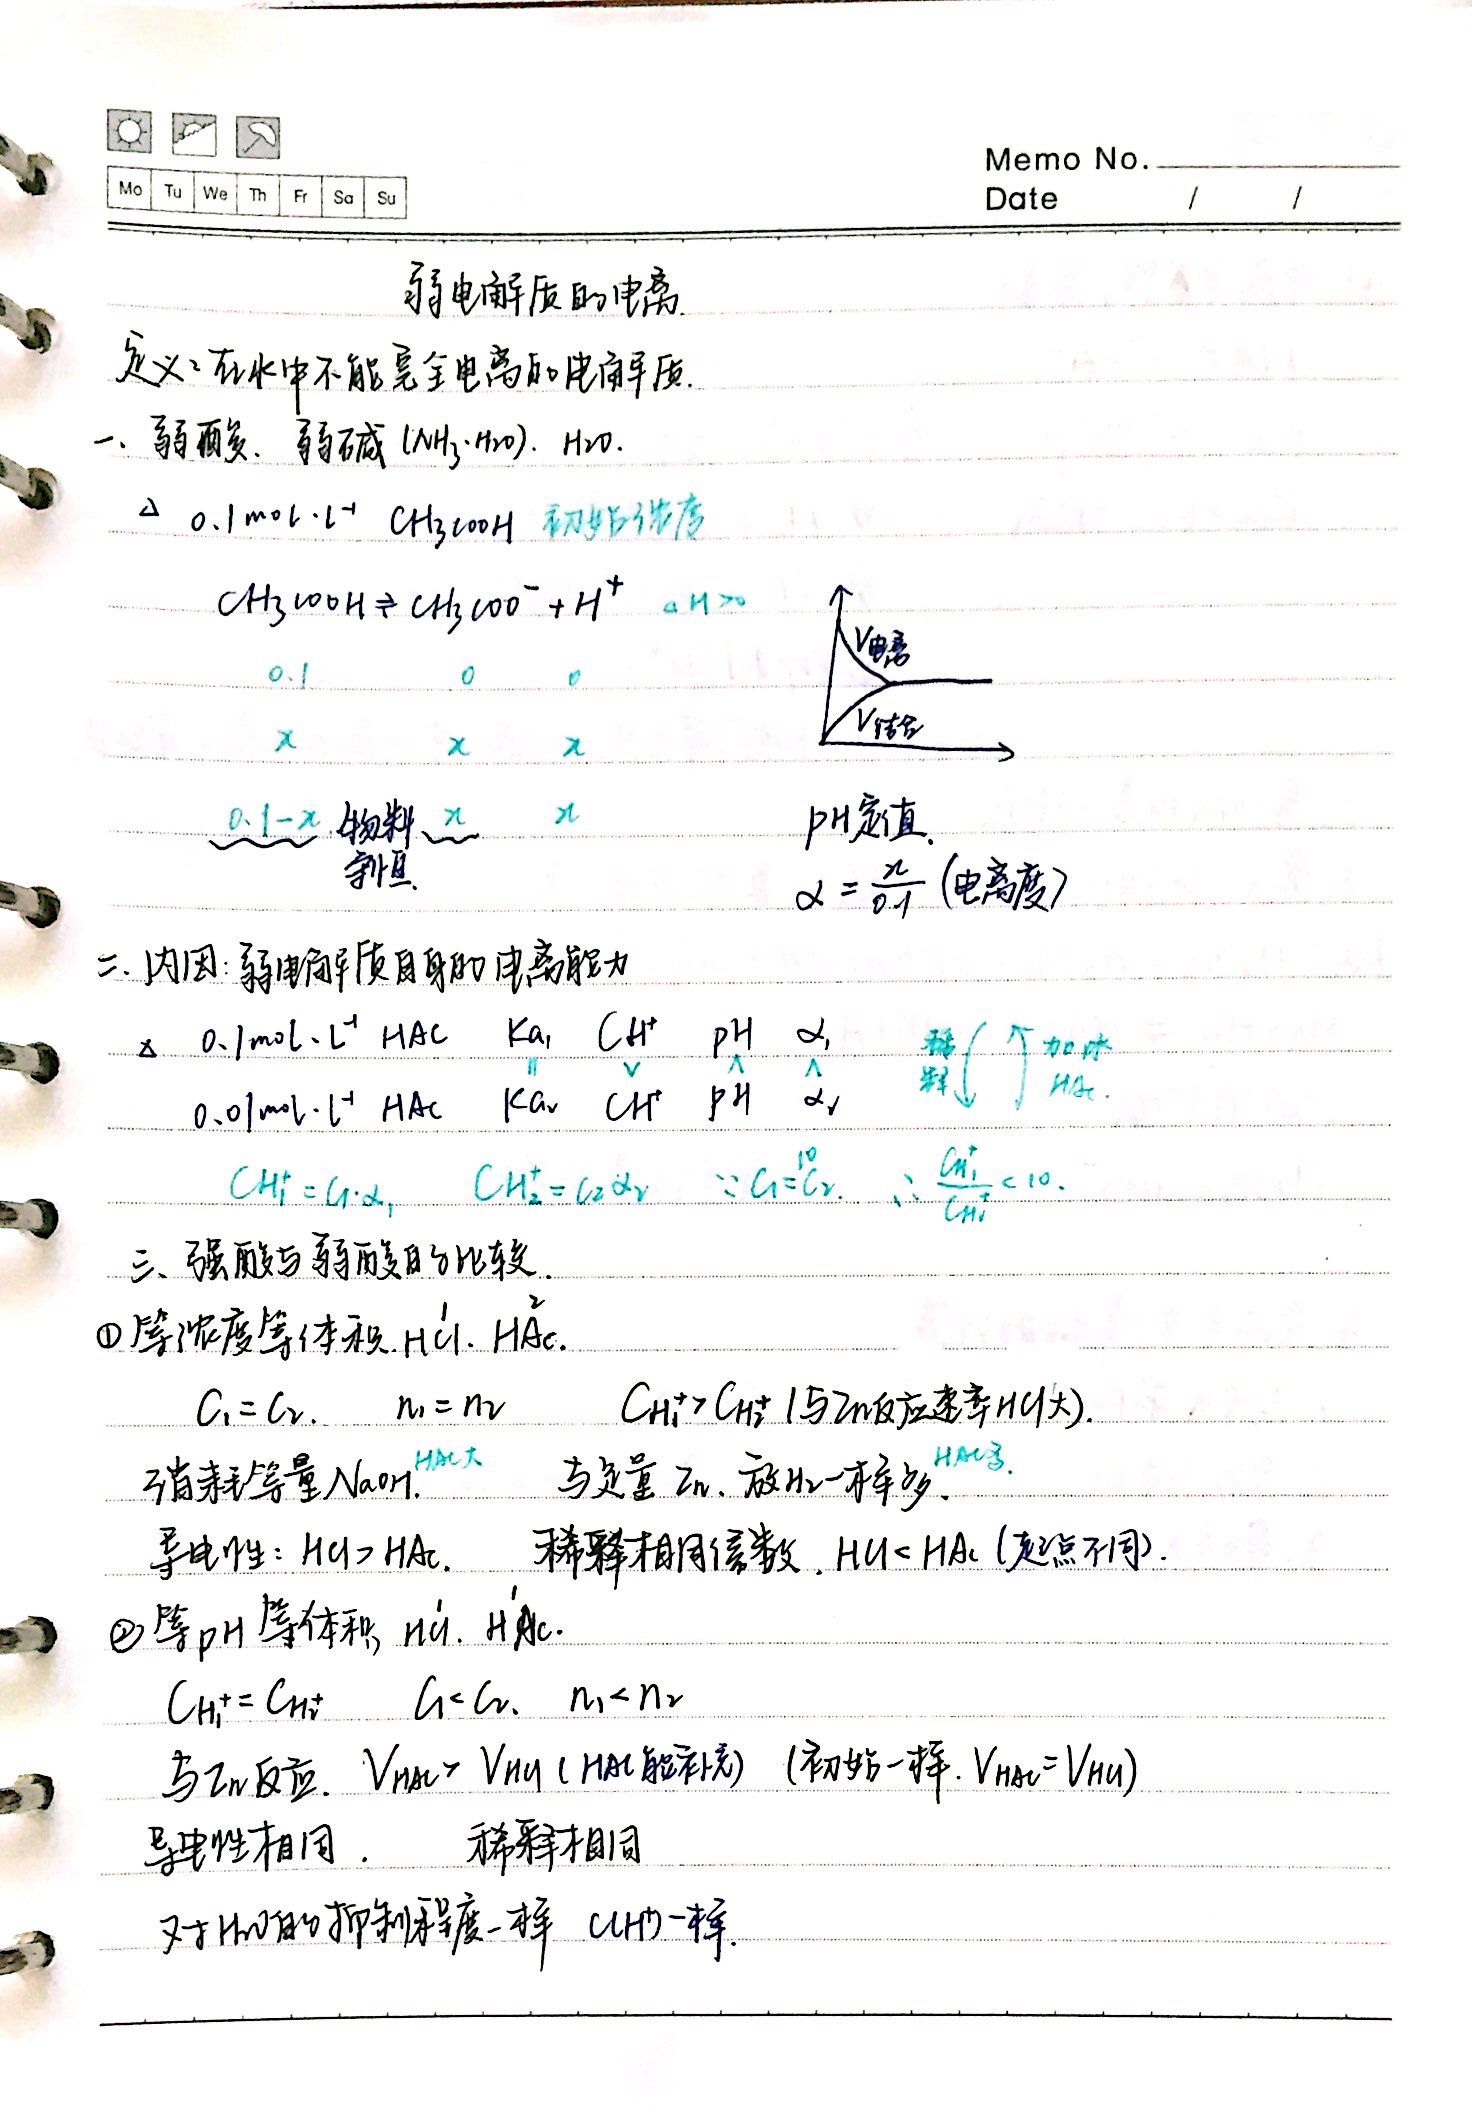 Mo Tu We Th Fr Sa Su
Memo No.
Date / /
弱电解质的电离.
定义：在水中不能完全电离的电解质.
一、弱酸、弱碱(NH₃·H₂O). H₂O.
△ 0.1mol·L⁻¹ CH₃COOH 初始浓度
CH₃COOH ⇌ CH₃COO⁻ + H⁺ △H>0
V电离
0.1 0 0
x x x
V结合
0.1-x 物料守恒. x x
pH定值.
α = x/0.1 (电离度)
二、内因：弱电解质自身的电离能力
△ 0.1mol·L⁻¹ HAC Ka₁ CH⁺ pH α₁ 稀释 加冰HAc.
= > < <
0.01mol·L⁻¹ HAc Ka₂ CH⁺ pH α₂
CH₁⁺=C₁·α₁ CH₂⁺=C₂α₂ ∵C₁=10C₂. ∴ CH₁⁺/CH₂⁺ < 10.
三、强酸与弱酸的比较.
①等浓度等体积 HCl¹. HAc².
C₁=C₂. n₁=n₂ CH₁⁺>CH₂⁺ (与Zn反应速率HCl大).
消耗等量NaOH. HAc大 与定量Zn. 放H₂一样多. HAc多.
导电性：HCl>HAc. 稀释相同倍数. HCl<HAc (起点不同).
②等pH等体积 HCl¹. HAc¹.
CH₁⁺=CH₂⁺ C₁<C₂. n₁<n₂
与Zn反应. VHAc>VHCl (HAc能补充) (初始一样. VHAc=VHCl)
导电性相同. 稀释相同
对H₂O的抑制程度一样 C(H⁺)一样.